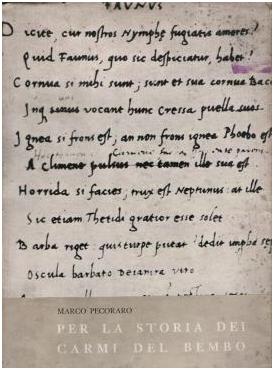 FAUNUS
Dicite, cur nostros Nymphę fugiatis amores?
Quid Faunus, quo sic despiciatur, habet?
Cornua si mihi sunt; sunt et sua cornua Bac
Inq sinus vocant hunc Cressa puella suos.
Ignea si frons est; an non frons ignea Phoebo est
A Climene pulsus nec tamen ille sua est.
Horrida si facies; trux est Neptunus. at ille
Sic etiam Thetidi gratior esse solet
Barba riget, quis turpe putat? dedit sep
Oscula barbato Deianira viro
MARCO PECORARO
PER LA STORIA DEI
CARMI DEL BEMBO